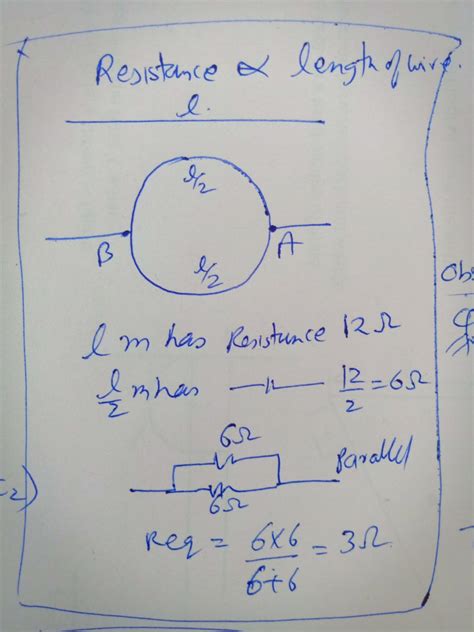 Resistance ∝ length of wire.
l.
l/2
B A
l/2
l m has Resistance 12Ω
l/2 m has —〃— 12/2 = 6Ω
6Ω
Parallel
6Ω
Req = 6×6/6+6 = 3Ω
Obs
2)